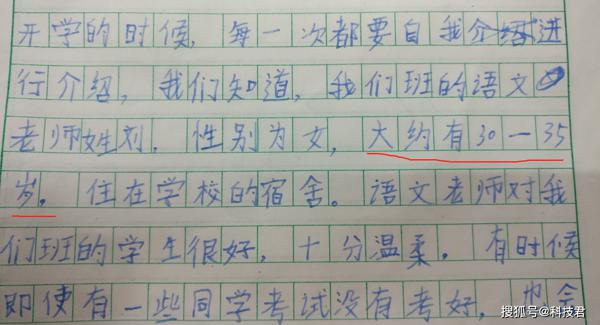 开学的时候，每一次都要自我介绍进
行介绍，我们知道，我们班的语文
老师姓刘，性别为女，大约有30一35
岁，住在学校的宿舍。语文老师对我
们班的学生很好，十分温柔。有时候
即使有一些同学考试没有考好，也会
搜狐号@科技君